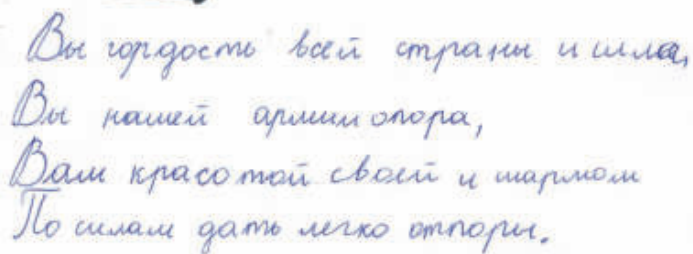 Вы гордость всей страны и сила,
Вы нашей армии опора,
Вам красотой своей и шармом
По силам дать легко отпоры.